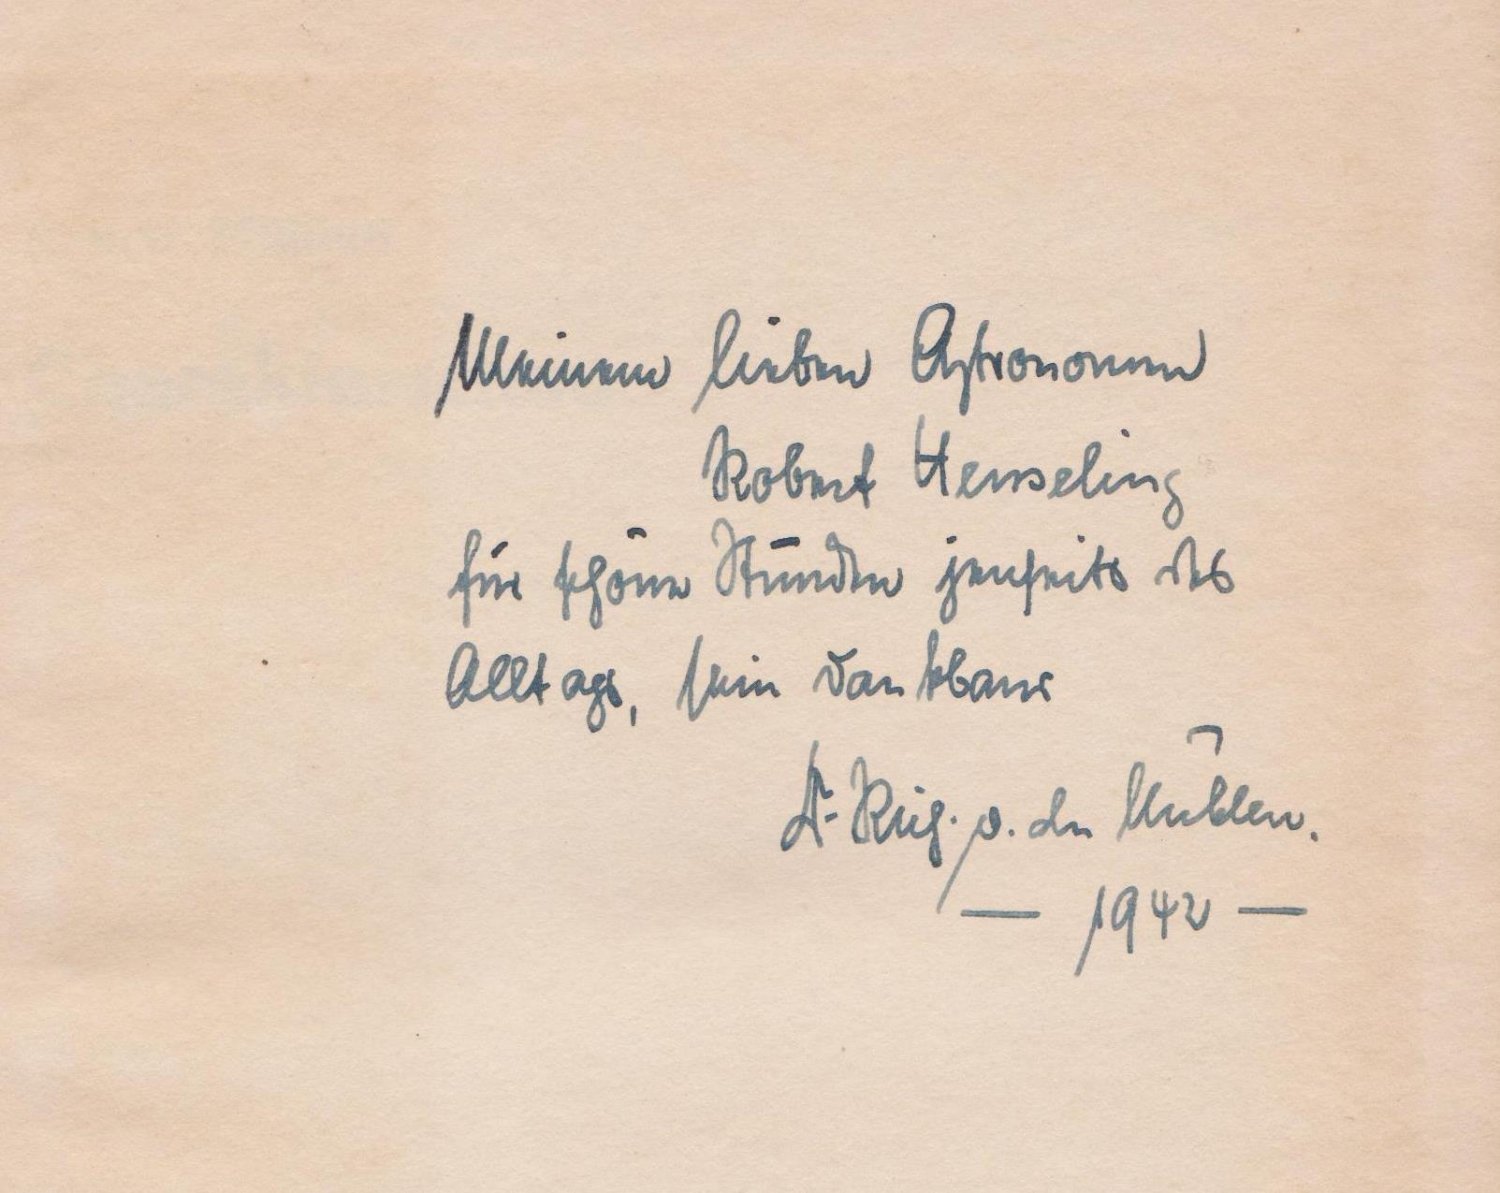 Meinem lieben Astronomen
Robert Henseling
für schöne Stunden jenseits des
Alltags, sein dankbarer
v. der Mühlen.
— 1942 —